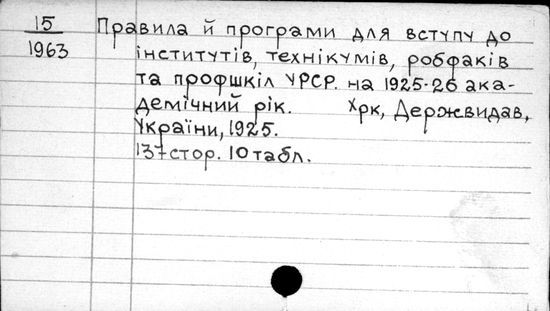 15
1963
Правила й програми для вступу до
інститутів, технікумів, робфаків
та профшкіл УРСР. на 1925-26 ака-
демічний рік. Хрк, Держвидав,
України, 1925.
137 стор. 10 табл.